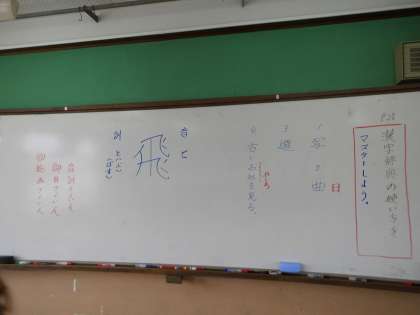 P28 漢字辞典の使い方を
マスターしよう。
1 写 2 曲
日
3 遊
4 古いお社を見る。
音 ヒ
飛
訓 と(ぶ)
(ばす)
音訓さくいん
部首さくいん
総画さくいん